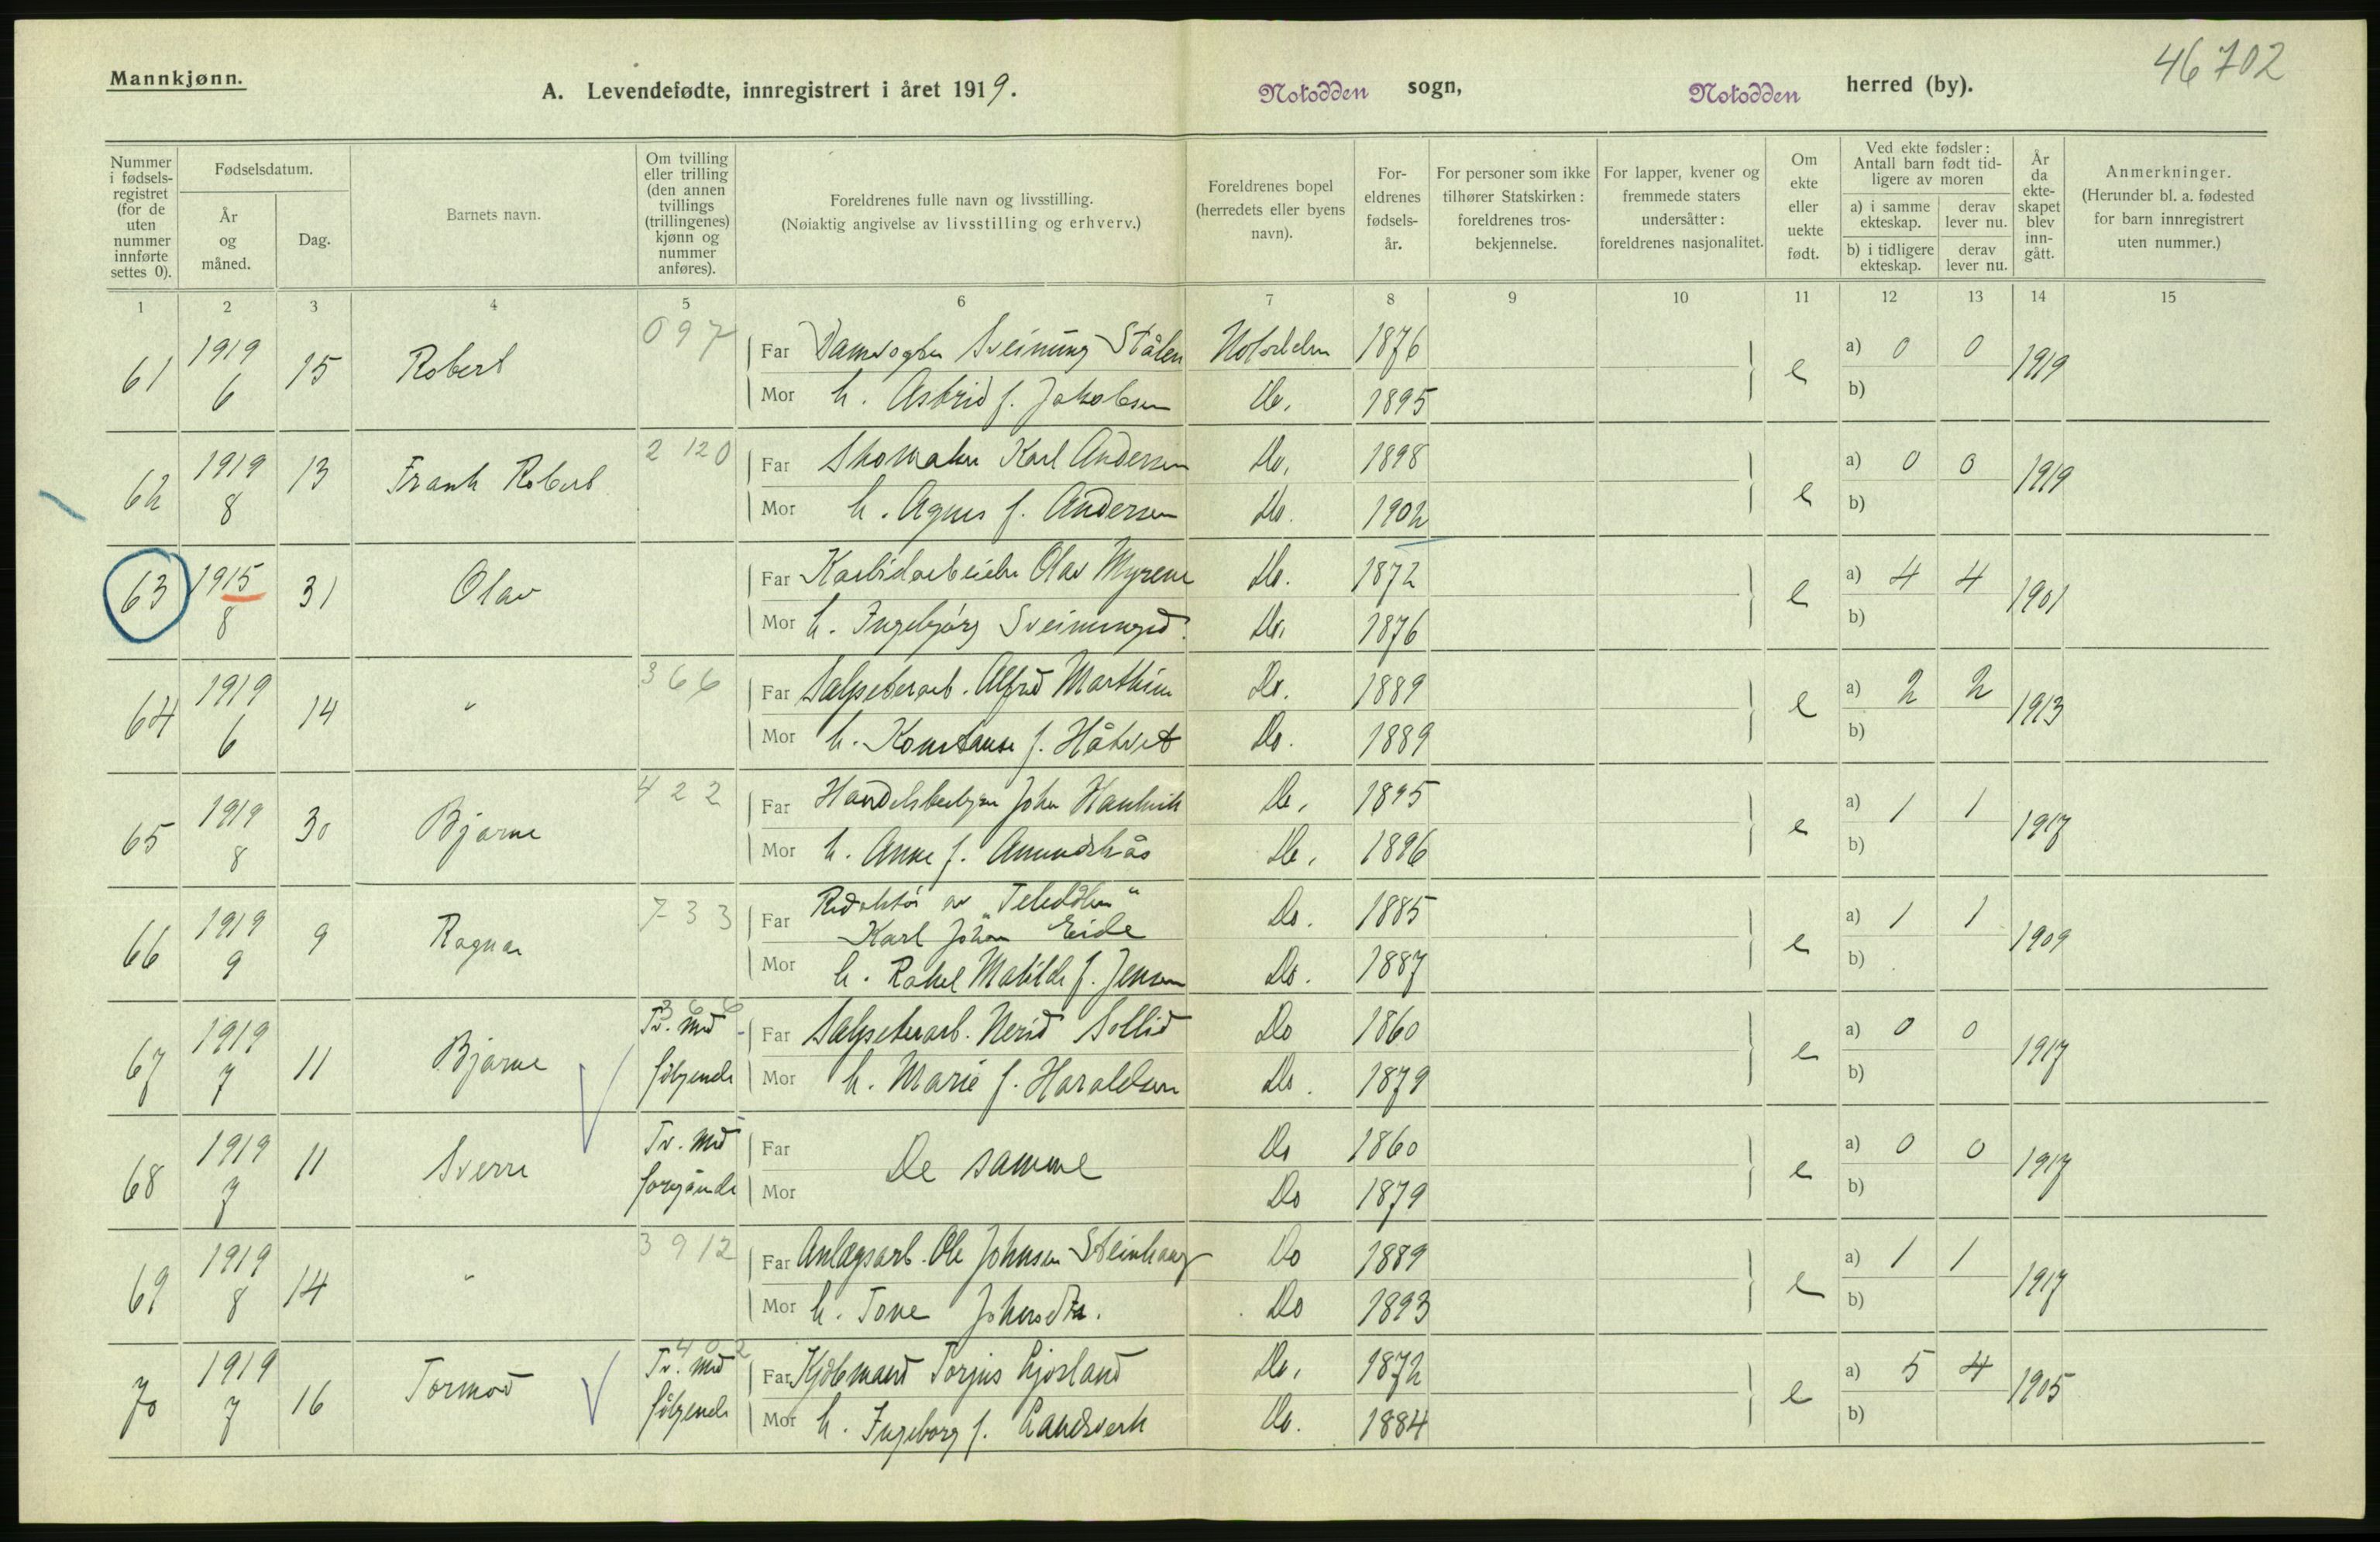 46702
Mannkjønn.
A. Levendefødte, innregistrert i året 1919.
Notodden sogn,
Notodden herred (by).
Nummer i fødsels-registret (for de uten nummer innførte settes 0).
Fødselsdatum.
År og måned.
Dag.
Barnets navn.
Om tvilling eller trilling (den annen tvillings (trillingenes) kjønn og nummer anføres).
Foreldrenes fulle navn og livsstilling.
(Nøiaktig angivelse av livsstilling og erhverv.)
Foreldrenes bopel (herredets eller byens navn).
For-eldrenes fødsels-år.
For personer som ikke tilhører Statskirken: foreldrenes tros-bekjennelse.
For lapper, kvener og fremmede staters undersåtter: foreldrenes nasjonalitet.
Om ekte eller uekte født.
Ved ekte fødsler: Antall barn født tid-ligere av moren
a) i samme ekteskap.
derav lever nu.
b) i tidligere ekteskap.
derav lever nu.
År da ekte-skapet blev inn-gått.
Anmerkninger.
(Herunder bl. a. fødested for barn innregistrert uten nummer.)
1 2 3 4 5 6 7 8 9 10 11 12 13 14 15
61 1919 6 15 Robert 097 Far Sveinung Stålen Notodden 1876 e a) 0 0 1919
Mor h. Astrid f. Jakobsen Do. 1895 b)
62 1919 8 13 Frank Robert 2 120 Far Skomaker Karl Andersen Do. 1898 e a) 0 0 1919
Mor h. Agnes f. Andersen Do. 1902 b)
63 1915 8 31 Olav Far Karbidarbeider Olav Myrene Do. 1872 e a) 4 4 1901
Mor h. Ingebjørg Sveinungsd. Do. 1876 b)
64 1919 6 14 " 366 Far Salpeterarb. Alfred Marthin Do. 1889 e a) 2 2 1913
Mor h. Konstanse f. Håtveit Do. 1889 b)
65 1919 8 30 Bjarne 422 Far Handelsbestyrer John Haukvik Do. 1895 e a) 1 1 1917
Mor h. Anne f. Amundsås Do. 1896 b)
66 1919 9 9 Ragnar 733 Far Redaktör av "Teledölen"
Karl Johan Eide Do. 1885 e a) 1 1 1909
Mor h. Rakel Matilde f. Jensen Do. 1887 b)
67 1919 7 11 Bjarne 366 Tv. med følgende Far Salpeterarb. Nerid Sollid Do 1860 e a) 0 0 1917
Mor h. Marie f. Haraldsen Do. 1879 b)
68 1919 7 11 Sverre Tv. med forgånde Far De samme Do 1860 e a) 0 0 1917
Mor Do 1879 b)
69 1919 8 14 " 3912 Far Anlægsarb. Ole Johnsen Steinhaug Do 1889 e a) 1 1 1917
Mor h. Tone Johnsdtr. Do 1893 b)
70 1919 7 16 Tormod 402 Tv. med følgende Far Kjöbmand Torjus Ljosland Do. 1872 e a) 5 4 1905
Mor h. Ingeborg f. Landsverk Do. 1884 b)